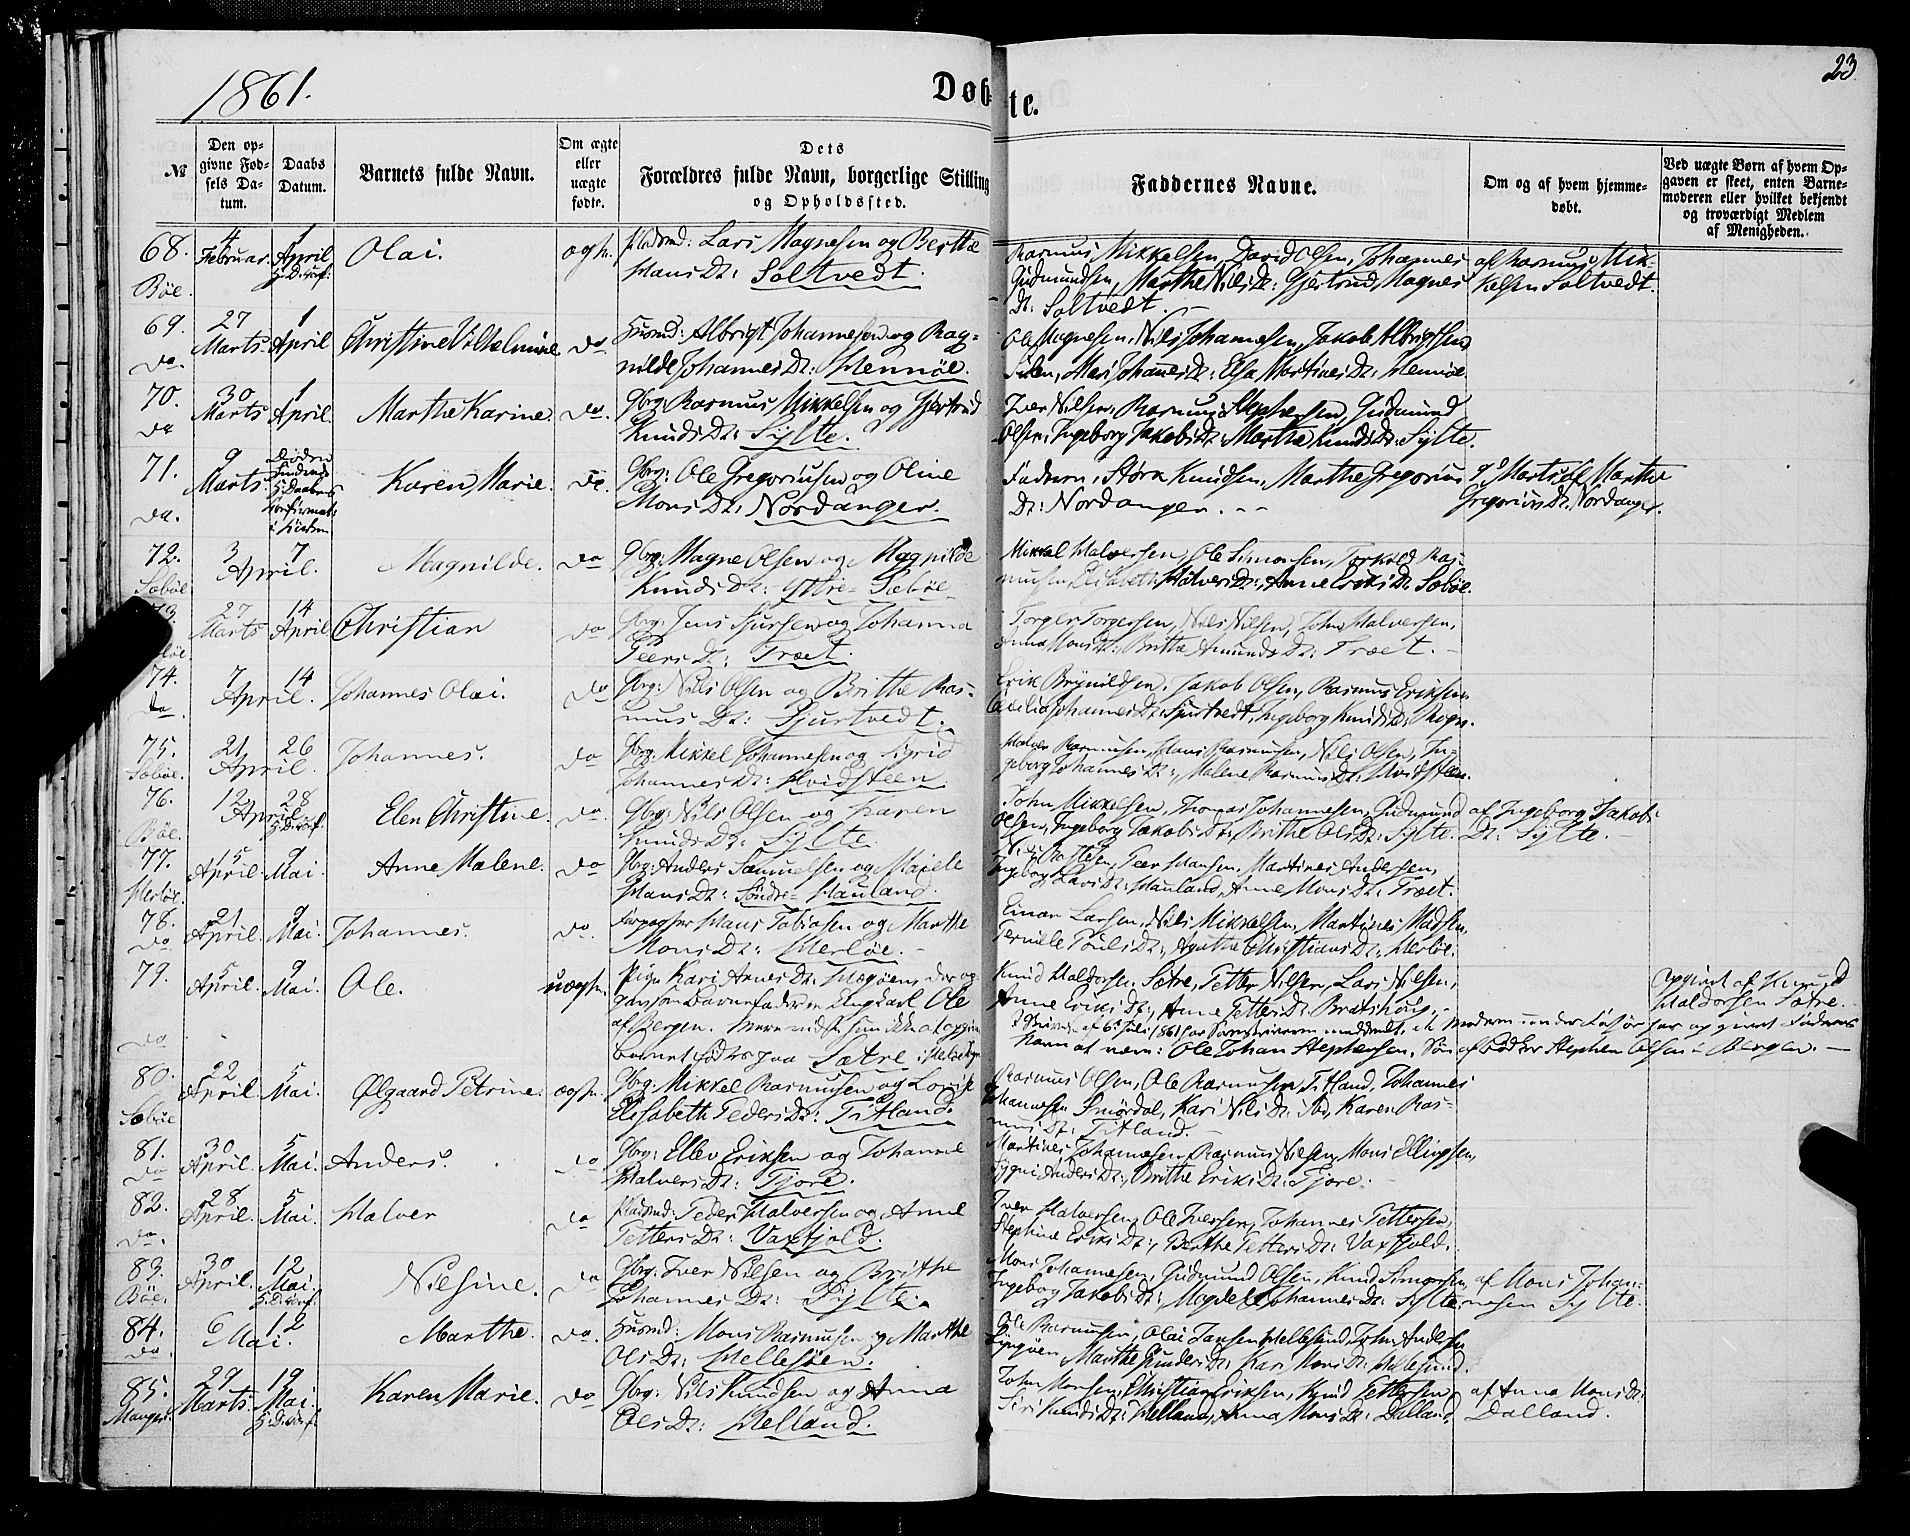 1861.
Døbte.
23
№
Den opgivne Fødsels Datum.
Daabs Datum.
Barnets fulde Navn.
Om ægte eller uægte fødte.
Dets Forældres fulde Navn, borgerlige Stilling og Opholdssted.
Faddernes Navne.
Om og af hvem hjemmedøbt.
Ved uægte Børn af hvem Opgaven er skeet, enten Barnemoderen eller hvilket bekjendt og troværdigt Medlem af Menigheden.
68. Bøe. 4 Februar. 1 April
Olai.
Lars Magnesen og Berthe
Hans Dr: Soltvedt.
Rasmus Mikkelsen, David Olsen, Johannes
Gudmundsen, Marthe Nils Dr: Gjertrud Magnes
Dr: Soltvedt.
af Rasmus Mikkelsen Soltvedt.
69. do. 27 Marts. 1 April
Christine Vilhelmine do
Husmd: Albrigt Johannesen og Ragnilde Johannes Dr: Hennøe.
Ole Magnesen, Nils Johannesen, Jakob Albrigtsen
Mari Johannes Dr: Elsa Martines Dr: Hennøe.
70. do 30 Marts 1 April
Marthe Karine. do.
Gbrg: Rasmus Mikkelsen og Gjertrud
Knuds Dr: Sylte.
Iver Nilsen, Rasmus Stephensen, Gudmund
Olsen, Ingeborg Jakobs Dr: Marthe Knuds Dr: Sylte.
71. do. 9 Marts.
Karen Marie. do.
Gbrg: Ole Gregoriusen og Oline
Mons Dr: Nordanger.
Faderen, Størk Knudsen, Marthe Gregorius
Dr: Nordanger.
9 Marts af Marthe
Gregorius Dr: Nordanger.
72. Sæbøe 3 7 April.
Magnilde. do
Gbrg: Magne Olsen og Magnilde
Knuds Dr: Ytre-Sæbøe
Mikkel Halversen, Ole Simonsen, Torkild Rasmusen, Elisabeth Halvers Dr:, Anne Eriks Dr: Sæbøe.
27 Marts 14 April
Christian do
Gbrg: Jens Sjursen og Johanna
Peers Dr: Træet.
Torger Torgersen, Nils Nilsen, John Halversen,
Anna Mons Dr: Brithe Amunds Dr: Træet.
74. do. 7 14 April.
Johannes Olai. do
Gbrg: Nils Olsen og Brithe Rasmus Dr: Sjurtvedt.
Erik Brynildsen, Jakob Olsen, Rasmus Eriksen
Johannes Dr: Sjurtvedt, Ingeborg Knuds Dr:
75. Sæbøe. 21 26 April.
Johannes. do
Gbrg: Mikkel Johannesen og Sigrid
Johannes Dr: Hvidsteen
Halver Rasmusen, Hans Rasmusen, Nils Olsen, Ingeborg Johannes Dr:, Malene Rasmus Dr: Hvidsteen.
76. Bøe. 12 28 April
Elen Christine. do.
Gbrg: Nils Olsen og Karen
Knuds Dr: Sylte.
John Mikkelsen, Thomas Johannesen, Gudmund
Olsen, Ingeborg Jakobs Dr:, Brithe Ols Dr: Sylte.
af Ingeborg Jakobs
Dr: Sylte.
77. Herløe. 15 April. 9 Mai.
Anne Malene. do
Gbrg: Anders Samuelsen og
Hans Dr: Søndre-Hauland.
Peer Hansen, Martines Andersen,
Ingeborg Lars Dr: Hauland, Anne Mons Dr: Træet.
78. do 21 April. 9 Mai.
Johannes. do.
Hans Tobiasen og Marthe
Mons Dr: Herløe.
Einar Larsen, Nils Mikkelsen, Martines Madsen,
Pernille Pouls Dr:, Agathe Christians Dr: Herløe.
79. do 5 April. 9 Mai.
Ole. uægte.
Pige Kari Arnes Dr:
af Bergen.
Barnet fødtes paa Sætre
Knud Haldorsen Sætre, Petter Nilsen, Lars Nilsen,
Anne Eriks Dr:, Anne Petters Dr:
Navn at være: Ole Johan Stephensen, Søn af Bødker Stephen Olsen i Bergen.
Opgivet af Knud
Haldorsen Sætre.
80. Sæbøe 22 April. 5 Mai.
Ølgaard Petrine. ægte.
Gbrg: Mikkel Rasmusen og Lovise
Elisabeth Peders Dr: Titland.
Rasmus Olsen, Ole Rasmusen Titland, Johannes
Johannesen Smørdal, Kari Nils Dr: Karen Rasmus Dr: Titland.
81. do 30 April. 5 Mai.
Anders. do
Gbrg: Ellev Eriksen og Johanne
Halvers Dr: Fjøre.
Martines Johannesen, Rasmus Nilsen, Mons Ellingsen,
Anders Dr:, Brithe Eriks Dr: Fjøre.
82. do. 28 April. 5 Mai.
Halver do
Peder Halversen og Anne
Petters Dr: Vaxfjold.
Iver Halversen, Ole Iversen, Johannes Pettersen,
Stephine Eriks Dr:, Berthe Petters Dr: Vaxfjold.
83. Bøe. 30 April. 12 Mai
Nilsine. do
Gbrg: Iver Nilsen og Brithe
Johannes Dr: Sylte.
Mons Johannesen, Gudmund Olsen, Knud Simonsen,
Ingeborg Jakobs Dr: Magdele Johannes Dr: Sylte
af Mons Johannesen Sylte.
84. do. 6 12 Mai.
Marthe. do.
Husmd: Mons Rasmusen og Marthe
Ols Dr: Hellesøen.
Ole Rasmusen, Olai Jansen Hellesund, John Andersen
Marthe Knuds Dr: Kari Mons Dr: Hellesund.
85. Manger. 29 Marts. 19 Mai.
Karen Marie. do
Gbrg: Nils Knudsen og Anna
Ols Dr: Helland.
John Monsen, Christian Eriksen, Knud Pettersen,
Siri Knuds Dr: Helland, Anna Mons Dr: Dalland.
af Anna Mons Dr:
Dalland.